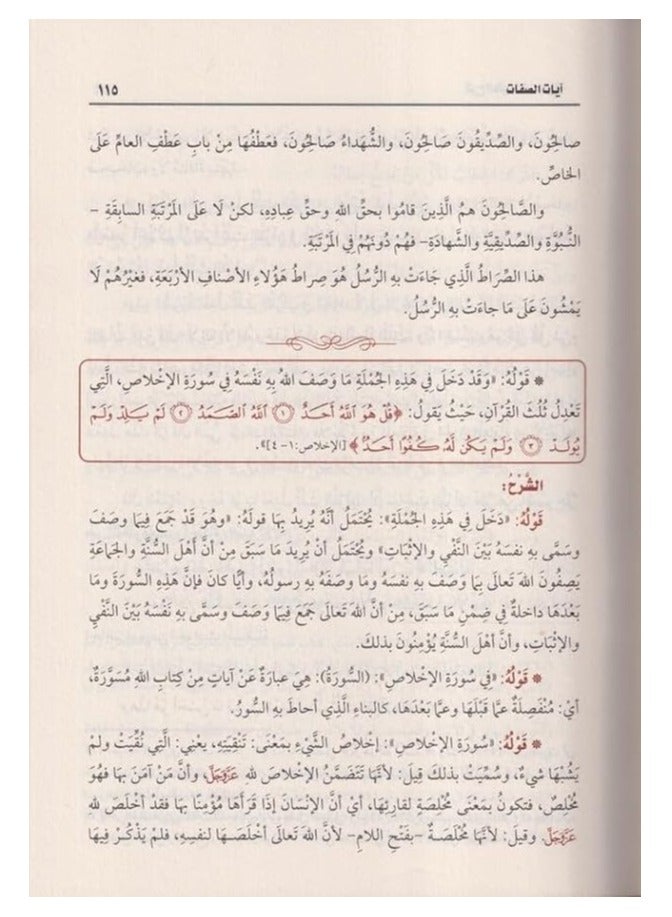 آيات الصفات ١١٥
صالِحُونَ، والصِّدِّيقُونَ صَالِحُونَ، والشُّهَداءُ صَالِحُونَ، فعَطْفُهَا مِنْ بابِ عَطْفِ العامِّ عَلَى
الخاصِّ.
والصَّالِحُونَ همُ الَّذِينَ قامُوا بحقِّ اللهِ وحقِّ عِبادِهِ، لكنْ لَا عَلَى المَرْتَبَةِ السابِقَةِ –
النُّبوَّةِ والصِّدِّيقِيَّةِ والشَّهادَةِ– فهُمْ دُونَهُمْ فِي المَرْتَبَةِ.
هذا الصِّراطُ الَّذِي جَاءَتْ بِهِ الرُّسُلُ هُوَ صِراطُ هَؤُلاءِ الأصْنافِ الأرْبَعَةِ، فغيْرُهُمْ لَا
يَمْشُونَ عَلَى مَا جاءَتْ بِهِ الرُّسُلُ.
* قَوْلُهُ: «وَقَدْ دَخَلَ فِي هَذِهِ الجُمْلَةِ مَا وَصَفَ اللهُ بِهِ نَفْسَهُ فِي سُورَةِ الإِخْلاصِ، الَّتِي
تَعْدِلُ ثُلُثَ القُرْآنِ، حَيْثُ يقولُ: ﴿قُلْ هُوَ ٱللَّهُ أَحَدٌ ۝١ ٱللَّهُ ٱلصَّمَدُ ۝٢ لَمْ يَلِدْ وَلَمْ
يُولَدْ ۝٣ وَلَمْ يَكُن لَّهُ كُفُوًا أَحَدٌ﴾ [الإخلاص:١-٤]».
الشَّرْحُ:
قَوْلُهُ: «دَخَلَ فِي هَذِهِ الجُمْلَةِ»: يُحْتَمَلُ أنَّهُ يُرِيدُ بِهَا قولَهُ: «وهُوَ قَدْ جَمَعَ فِيمَا وَصَفَ
وَسَمَّى بِهِ نفسَهُ بَيْنَ النَّفْيِ والإِثْبَاتِ» ويُحْتَمَلُ أنْ يُرِيدَ مَا سَبَقَ مِنْ أنَّ أَهْلَ السُّنَّةِ والجَمَاعَةِ
يَصِفُونَ اللهَ تَعالَى بِمَا وَصَفَ بِهِ نفسَهُ ومَا وصَفَهُ بِهِ رسولُهُ، وأيًّا كانَ فإنَّ هَذِهِ السُّورَةَ ومَا
بَعْدَهَا داخلةٌ فِي ضِمْنِ مَا سَبَقَ، مِنْ أنَّ اللهَ تَعالَى جَمَعَ فِيمَا وَصَفَ وَسَمَّى بِهِ نَفْسَهُ بَيْنَ النَّفْيِ
والإثْبَاتِ، وأنَّ أهْلَ السُّنَّةِ يُؤْمِنُونَ بذلكَ.
* قَوْلُهُ: «فِي سُورَةِ الإخْلاصِ»: (السُّورَةُ): هِيَ عبارَةٌ عَنْ آياتٍ مِنْ كِتابِ اللهِ مُسَوَّرَةٌ،
أيْ: مُنْفَصِلَةٌ عمَّا قَبْلَهَا وعمَّا بَعْدَهَا، كالبِناءِ الَّذِي أحاطَ بِهِ السُّورُ.
* قَوْلُهُ: «سُورَةِ الإخْلاصِ»: إخلاصُ الشَّيْءِ بمَعْنَى: تَنْقِيَتِهِ، يعْنِي: الَّتِي نُقِّيَتْ ولمْ
يَشُبْهَا شيءٌ، وسُمِّيَتْ بذلكَ قِيلَ: لأنَّهَا تَتَضَمَّنُ الإخْلاصَ للهِ عَزَّوَجَلَّ، وأنَّ مَنْ آمَنَ بِهَا فهُوَ
مُخْلِصٌ، فتكونُ بمَعْنَى مُخْلِصَةٍ لقارِئِهَا، أيْ أنَّ الإنْسَانَ إذَا قَرَأَهَا مُؤْمِنًا بِهَا فقدْ أخْلَصَ للهِ
عَزَّوَجَلَّ. وقيلَ: لأنَّهَا مُخْلَصَةٌ –بفَتْحِ اللامِ– لأنَّ اللهَ تَعَالَى أخْلَصَهَا لنفسِهِ، فلمْ يَذْكُرْ فِيهَا